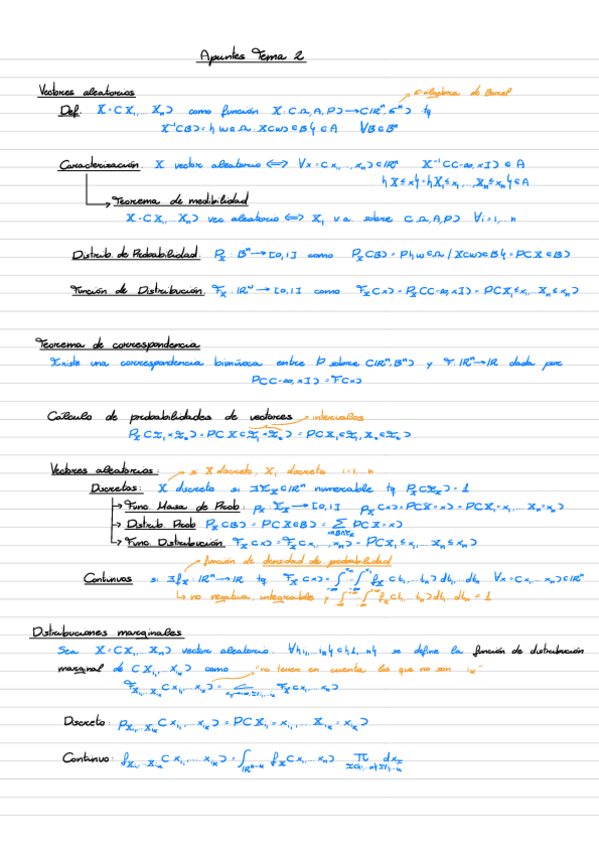 Apuntes Tema 2
Vectores aleatorios
σ-álgebra de Borel
Def: X=(X₁,...Xₙ) como función X:(Ω,A,P)→(ℝⁿ,Bⁿ) tq
X⁻¹(B)={ω∈Ω: X(ω)∈B}∈A ∀B∈Bⁿ
Caracterización: X vector aleatorio ⟺ ∀x=(x₁,...,xₙ)∈ℝⁿ X⁻¹((-∞,x])∈A
{X≤x}={X₁≤x₁,...,Xₙ≤xₙ}∈A
Teorema de medibilidad
X=(X₁,...Xₙ) vec aleatorio ⟺ Xᵢ v.a. sobre (Ω,A,P) ∀i=1,...n
Distrib. de Probabilidad: Pₓ: Bⁿ→[0,1] como Pₓ(B)=P{ω∈Ω/X(ω)∈B}=P(X∈B)
Función de Distribución: Fₓ: ℝⁿ→[0,1] como Fₓ(x)=Pₓ((-∞,x])=P(X₁≤x₁,...Xₙ≤xₙ)
Teorema de correspondencia
Existe una correspondencia biunívoca entre P sobre (ℝⁿ,Bⁿ) y F:ℝⁿ→ℝ dada por
P((-∞,x])=F(x)
Cálculo de probabilidades de vectores → intervalos
Pₓ(I₁×I₂)=P(X∈I₁×I₂)=P(X₁∈I₁,X₂∈I₂)
Vectores aleatorios: → si X discreto, Xᵢ discreto i=1,...n
Discretos: X discreto si ∃Eₓ∈ℝⁿ numerable tq Pₓ(Eₓ)=1
Func. Masa de Prob: pₓ: Eₓ→[0,1] pₓ(x)=P(X=x)=P(X₁=x₁,...Xₙ=xₙ)
Distrib. Prob Pₓ(B)=P(X∈B)=∑ P(X=x)
Func. Distribución Fₓ(x)=Fₓ(x₁,...,xₙ)=P(X₁≤x₁,...Xₙ≤xₙ)
función de densidad de probabilidad
Continuos si ∃fₓ:ℝⁿ→ℝ tq Fₓ(x)=∫...∫ fₓ(t₁,...tₙ)dt₁...dtₙ ∀x=(x₁,...xₙ)∈ℝⁿ
↳ no negativa, integrable y ∫...∫ fₓ(t₁,...tₙ)dt₁...dtₙ=1
Distribuciones marginales
Sea X=(X₁,...Xₙ) vector aleatorio. ∀{i₁,...,iₖ}⊂{1,...n} se define la función de distribución
marginal de (Xᵢ₁,...Xᵢₖ) como "no tener en cuenta los que no son iₖ"
Discreto:
Continuo: